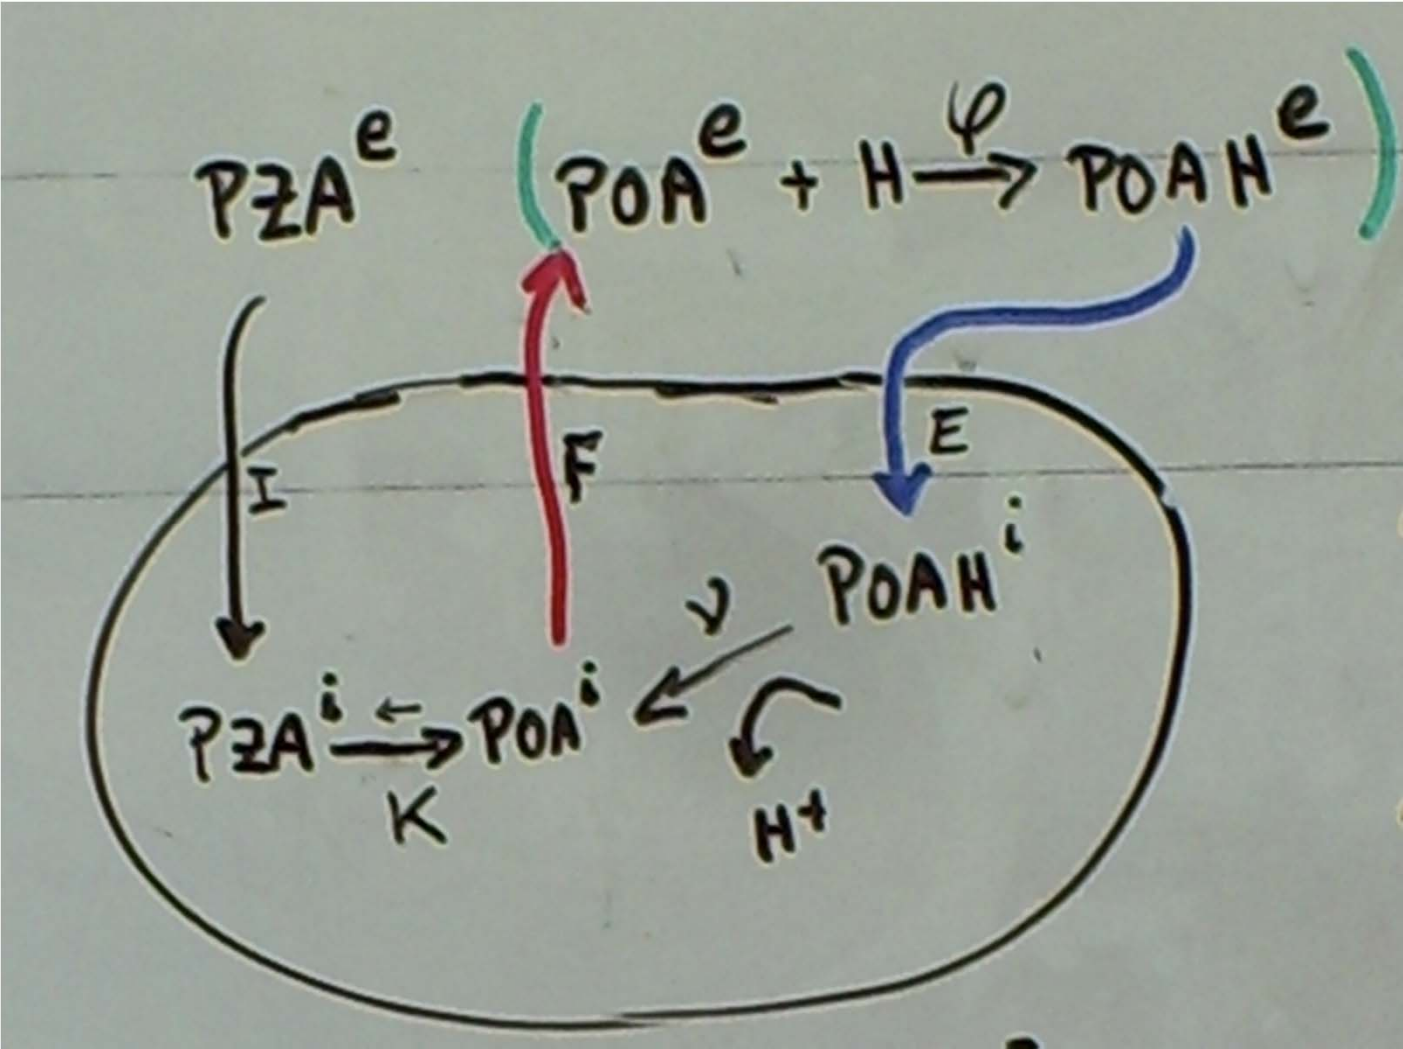 PZA^e (POA^e + H →^φ POAH^e)
I F E
POAH^i
ν
PZA^i ⇄ POA^i
K H+